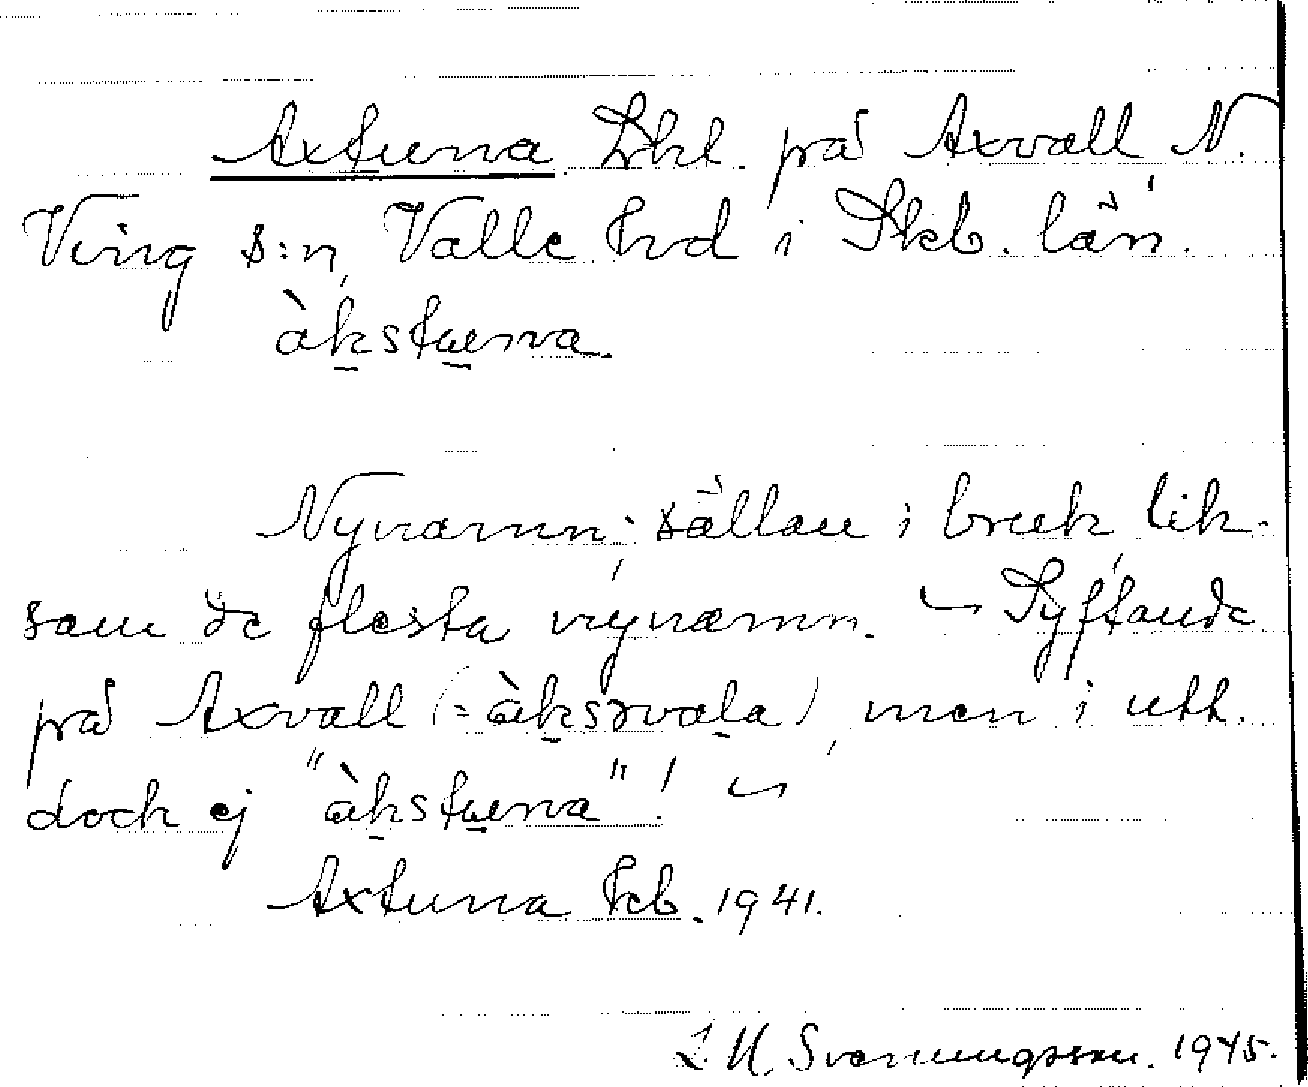 Axtuna Lhl. på Axvall N.
Ving s:n, Valle hrd i Skb. län.
àkstuna.
Nynamn; sällan i bruk lik-
som de flesta nynamn. ~ Syftande
på Axvall (= àksrvala), men i utt.
doch ej "àkstuna"! ~
Axtuna hcb. 1941.
Svenungsson. 1945.